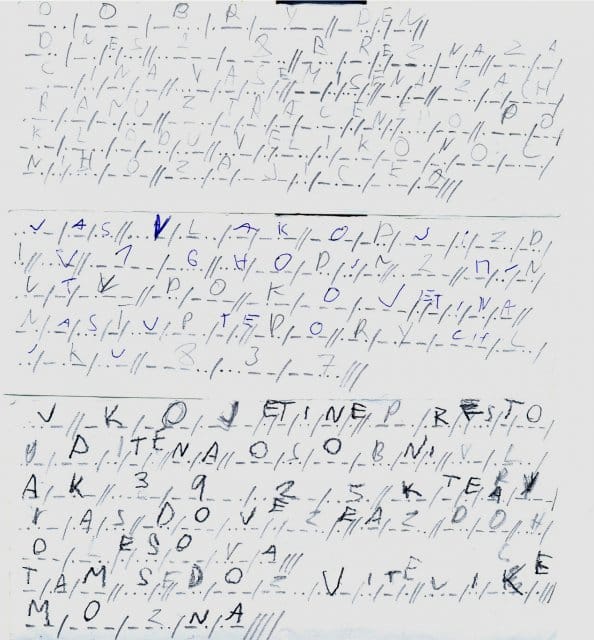 D O B R Y D E N
D N E S 1 8 B R E Z N A Z A
C I N A V A S E M I S E N I Z A CH
R A N U Z T R A C E N Y H O P O
K L A D U V E L I K O N O C
N I H O Z A J I C E K A
V A S V L A K O D J I Z D
I V 1 6 H O D I N 2 M I N
U T Y D O K O J E T I N A
N A S T U P T E D O R Y CH L
I K U 8 3 7
V K O J E T I N E P R E S T O
U P I T E N A O S O B N I V L
A K 3 9 2 5 K T E R Y
V A S D O V E Z E A Z D O H
O L E S O V A
T A M S E D O Z V I T E V I K E
M O Z N A